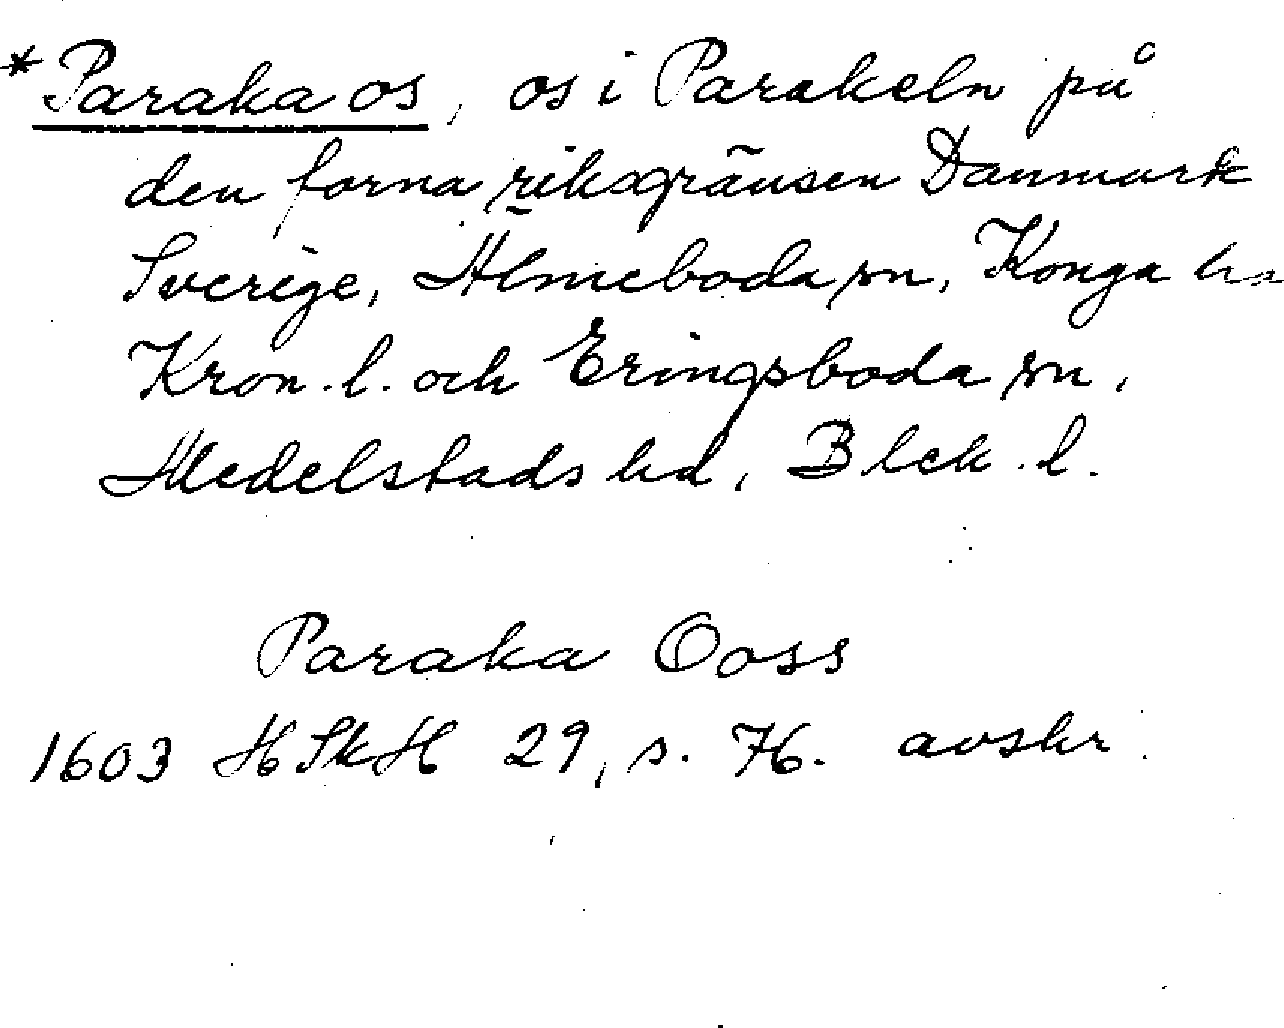 *Paraka os, os i Parakeln på
den forna riksgränsen Danmark
Sverige, Älmeboda sn, Konga hd
Kron. l. och Eringsboda sn,
Medelstads hd, Blek. l.
Paraka Ooss
1603 HSkH 29, s. 76. avskr.